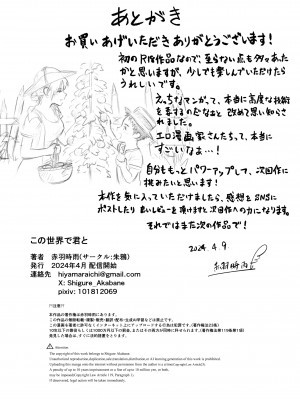 あとがき
お買いあげいただきありがとうございます！
初のR18作品なので至らない点も多々あった
かと思いますが、少しでも楽しんでいただけたら
うれしいです。
えっちなマンガって、本当に高度な技術
を要するのだなぁと改めて思い知ら
されました。
エロ漫画家さんたちって、本当に
すごいなぁ…！
自分ももっとパワーアップして、次回作に
挑みたいと思います！
本作を気に入っていただけましたら、感想をSNSに
ポストしたり良いレビューを頂けますと次回作への力になります。
それではまた次の作品で！
2024.4.9.
赤羽時雨
この世界で君と
著者 赤羽時雨(サークル:朱鴉)
発行 2024年4月 配信開始
連絡先 hiyamaraichi@gmail.com
X: Shigure_Akabane
pixiv: 101812069
!!注意!!
本作品の著作権は赤羽時雨にあります。
Attention
The copyright of this work belongs to Shigure Akabane.